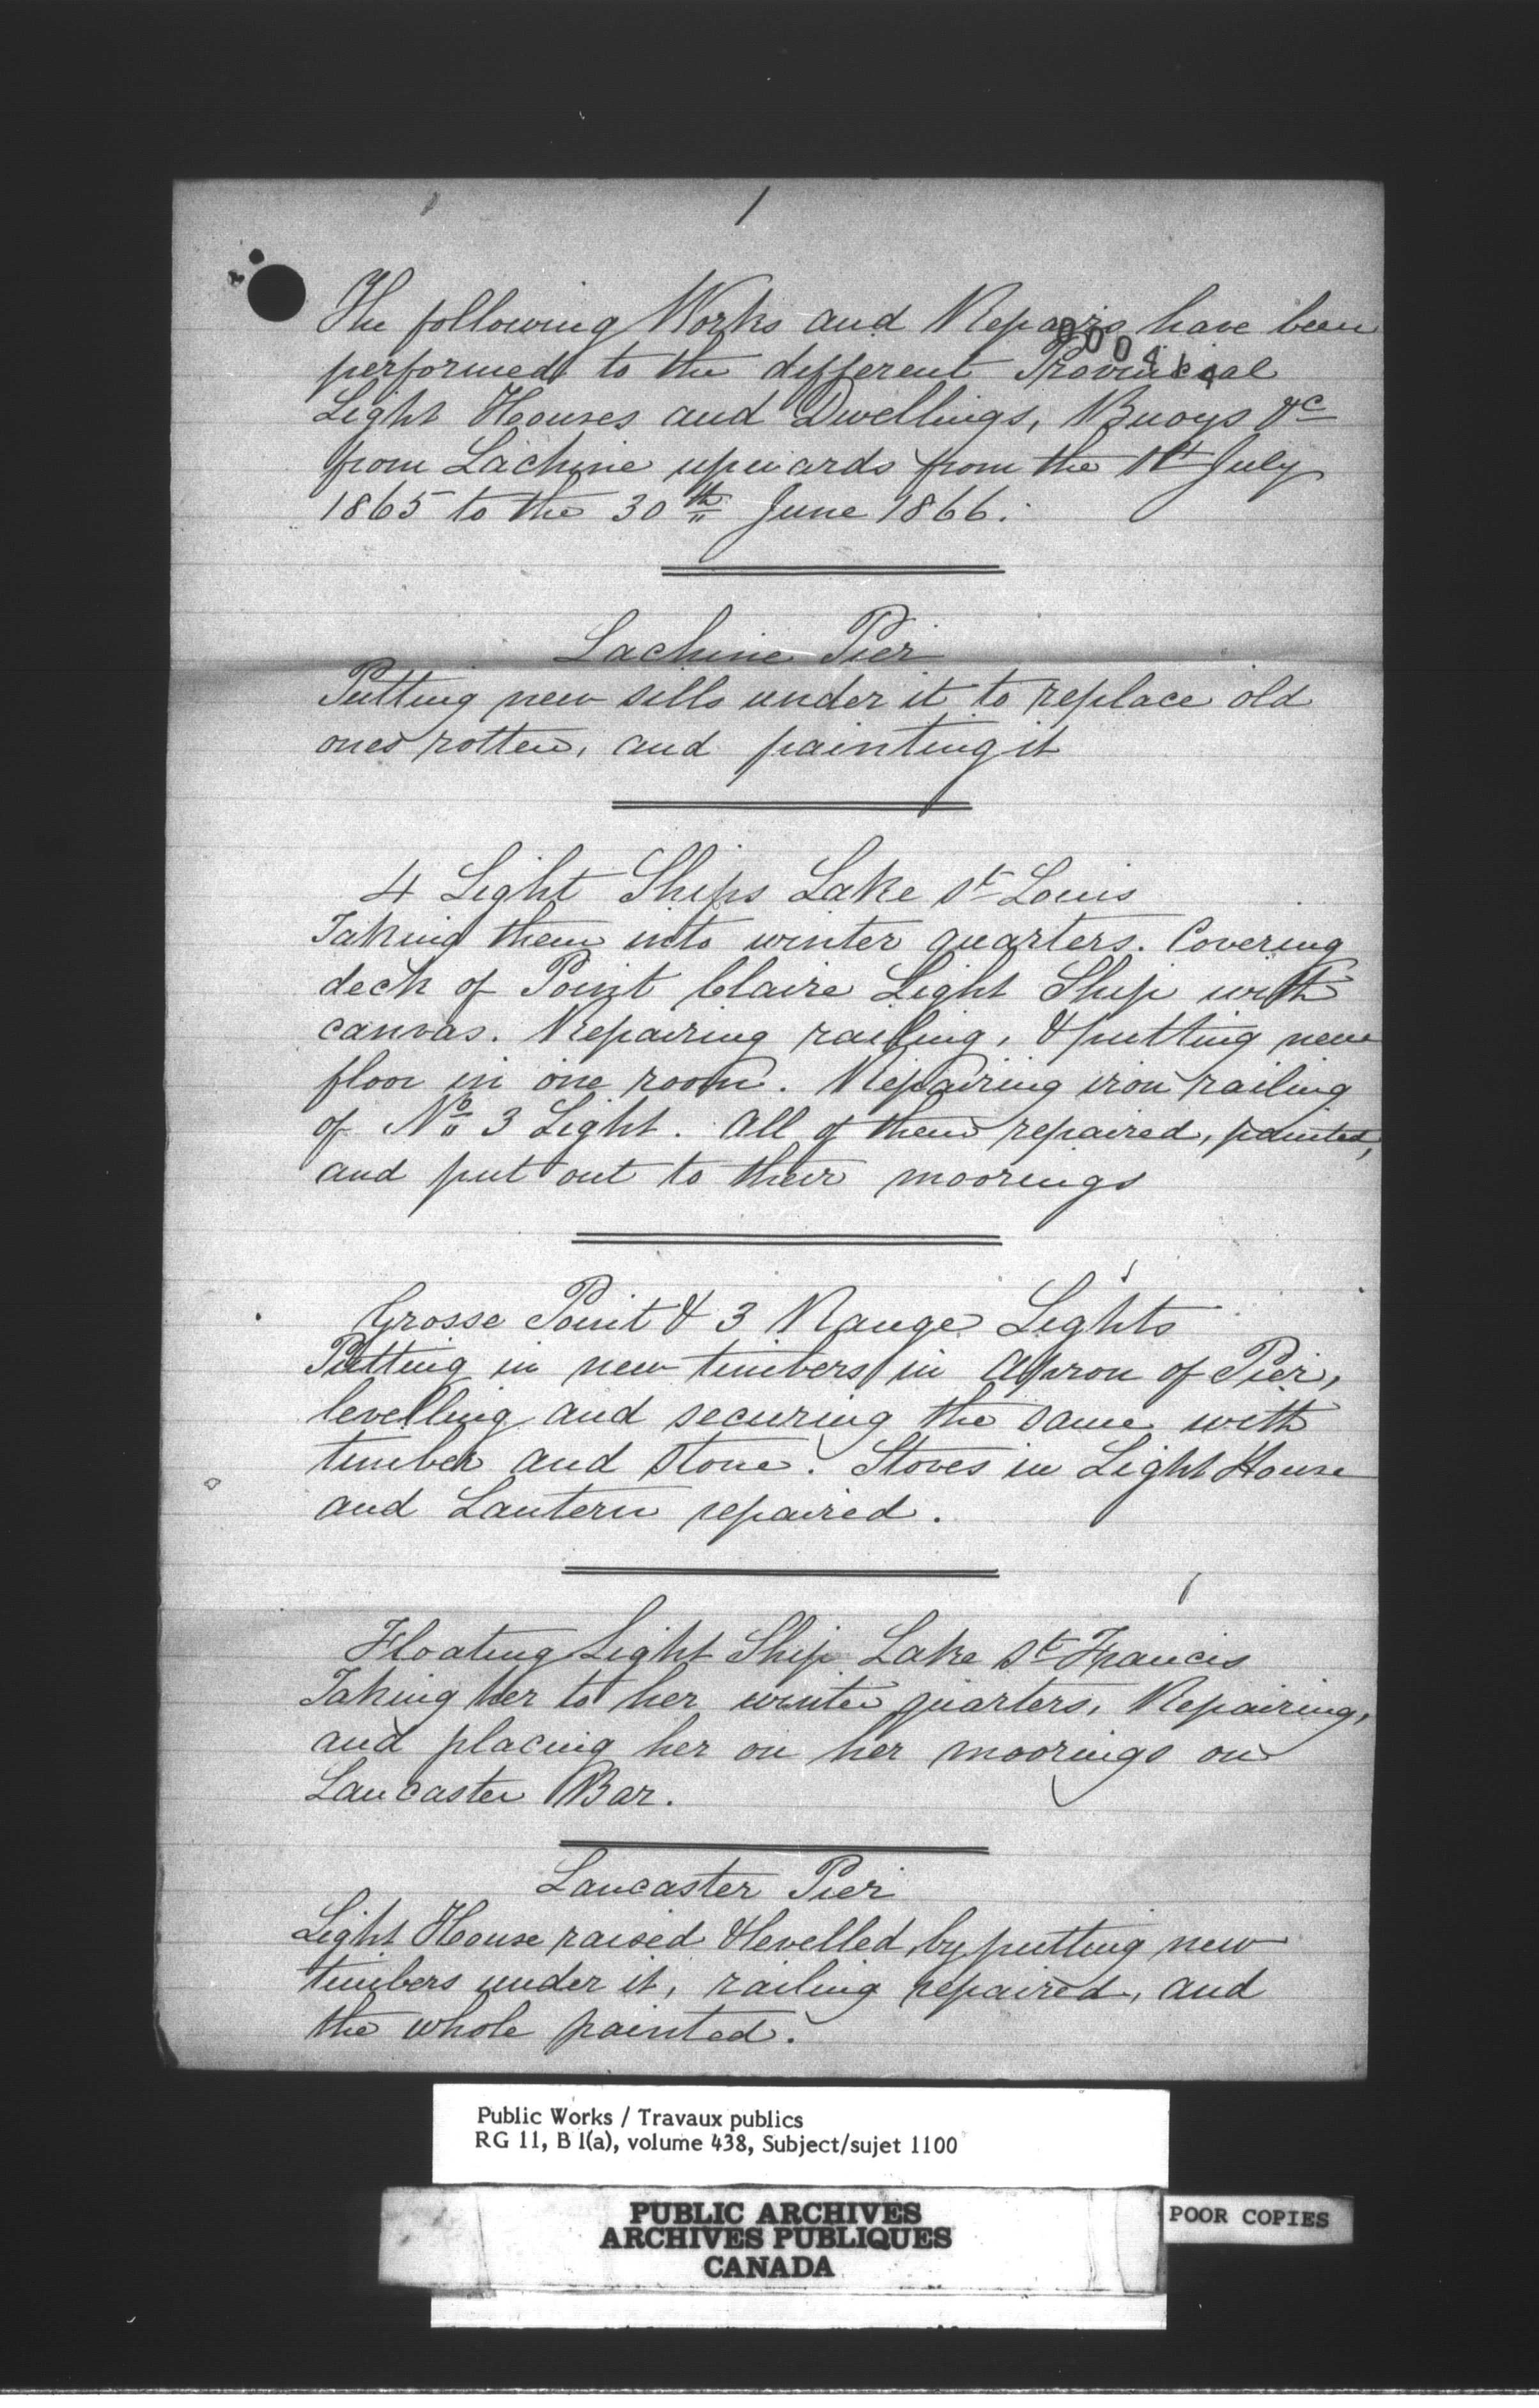 1
The following Works and Repairs have been
performed to the different Provincial
Light Houses and Dwellings, Buoys &c
from Lachine upwards from the 1st July
1865 to the 30th June 1866.
Lachine Pier
Putting new sills under it to replace old
ones rotten, and painting it
4 Light Ships Lake St Louis
Taking them into winter quarters. Covering
deck of Point Claire Light Ship with
canvas. Repairing railing, & putting new
floor in one room. Repairing iron railing
of No 3 Light. All of them repaired, painted,
and put out to their moorings
Grosse Point & 3 Range Lights
Putting in new timbers in Apron of Pier,
levelling and securing the same with
timber and stone. Stoves in Light House
and Lantern repaired.
Floating Light Ship Lake St Francis
Taking her to her winter quarters, Repairing,
and placing her on her moorings on
Lancaster Bar.
Lancaster Pier
Light House raised & levelled, by putting new
timbers under it, railing repaired, and
the whole painted.
Public Works / Travaux publics
RG 11, B 1(a), volume 438, Subject/sujet 1100
PUBLIC ARCHIVES
ARCHIVES PUBLIQUES
CANADA
POOR COPIES